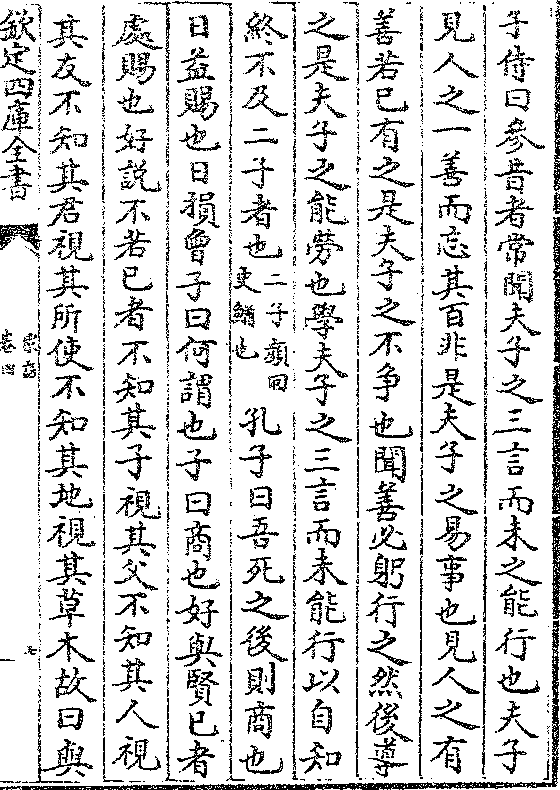 子侍曰參昔者常聞夫子之三言而未之能行也夫子
見人之一善而忘其百非是夫子之易事也見人之有
善若已有之是夫子之不爭也聞善必躬行之然後導
之是夫子之能勞也學夫子之三言而未能行以自知
終不及二子者也二子顔回史鰌也孔子曰吾死之後則商也
日益賜也日損曾子曰何謂也子曰商也好與賢已者
處賜也好說不若已者不知其子視其父不知其人視
其友不知其君視其所使不知其地視其草木故曰與
欽定四庫全書
卷四
七